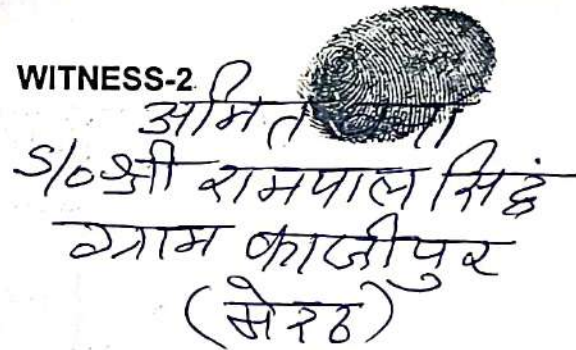 WITNESS-2
अमित
S/o श्री रामपाल सिंह
ग्राम काजीपुर
(मेरठ)